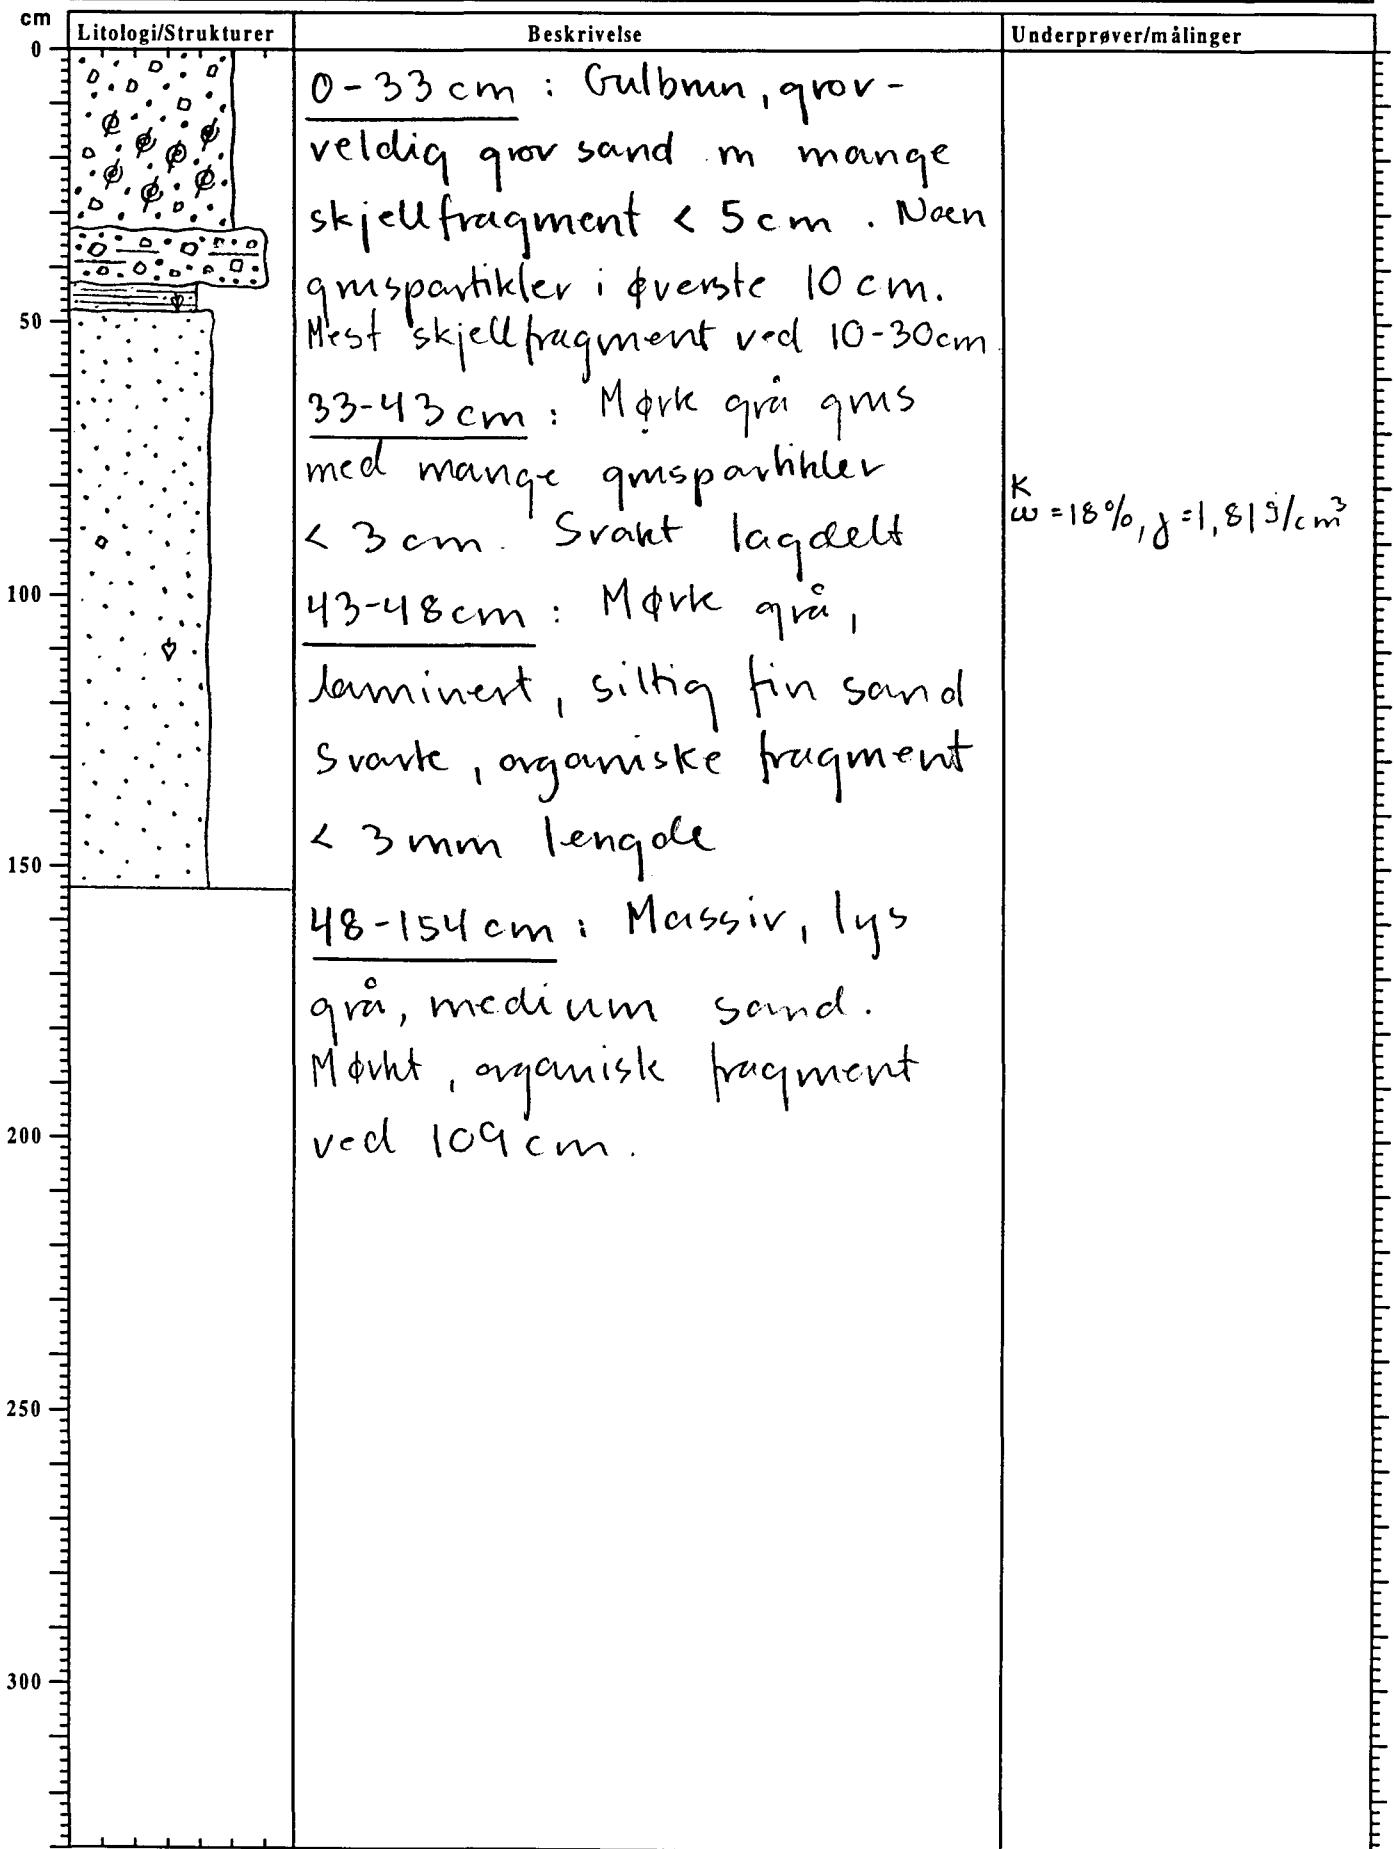 cm
Litologi/Strukturer
Beskrivelse
Underprøver/målinger
0
50
100
150
200
250
300
0-33 cm : Gulbrun, grov-
veldig grov sand m mange
skjellfragment < 5 cm . Noen
gruspartikler i øverste 10 cm.
Mest skjellfragment ved 10-30cm
33-43 cm : Mørk grå grus
med mange gruspartikler
< 3 cm. Svakt lagdelt
43-48cm : Mørk grå,
laminert, siltig fin sand
Svarte, organiske fragment
< 3 mm lengde
48-154 cm : Massiv, lys
grå, medium sand.
Mørkt, organisk fragment
ved 109 cm.
K
ω =18%, γ =1,81 g/cm³